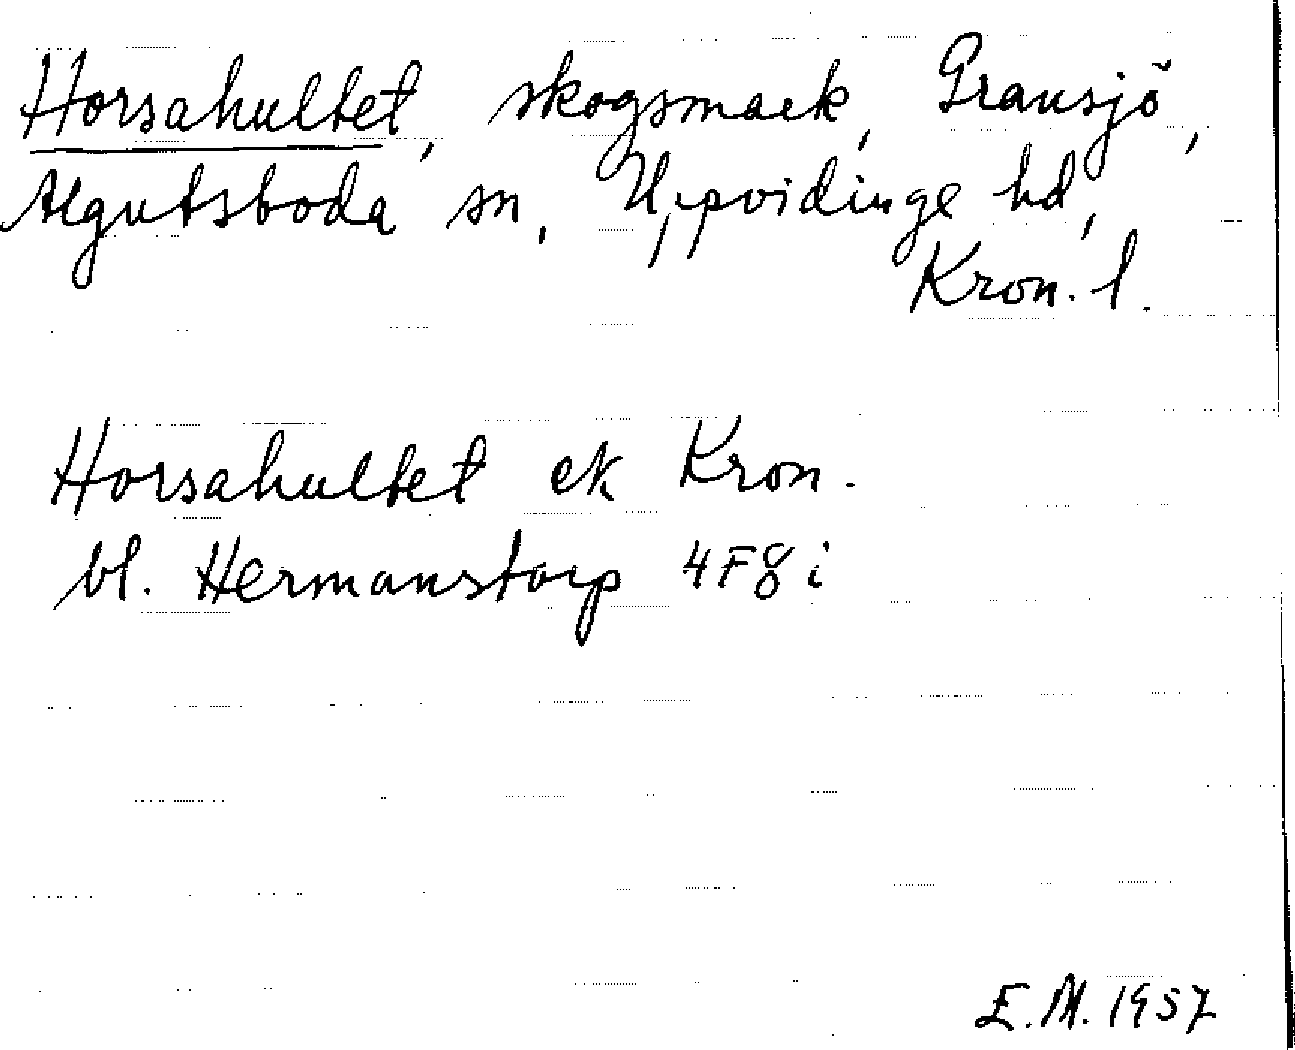 Horsahultet, skogsmark, Gransjö,
Algutsboda sn, Uppvidinge hd,
Kron. l.
Horsahultet ek Kron.
bl. Hermanstorp 4F8i
E.M. 1957